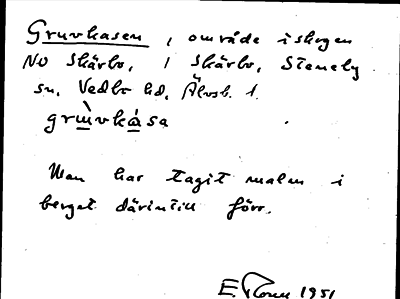 Gruvkasen, område i skogen
NO Skärbo, i Skärbo,
sn, Vedbo hd, Älvsb. l.
grùvkàsa
Man har tagit malm i
berget därintill förr.
1951